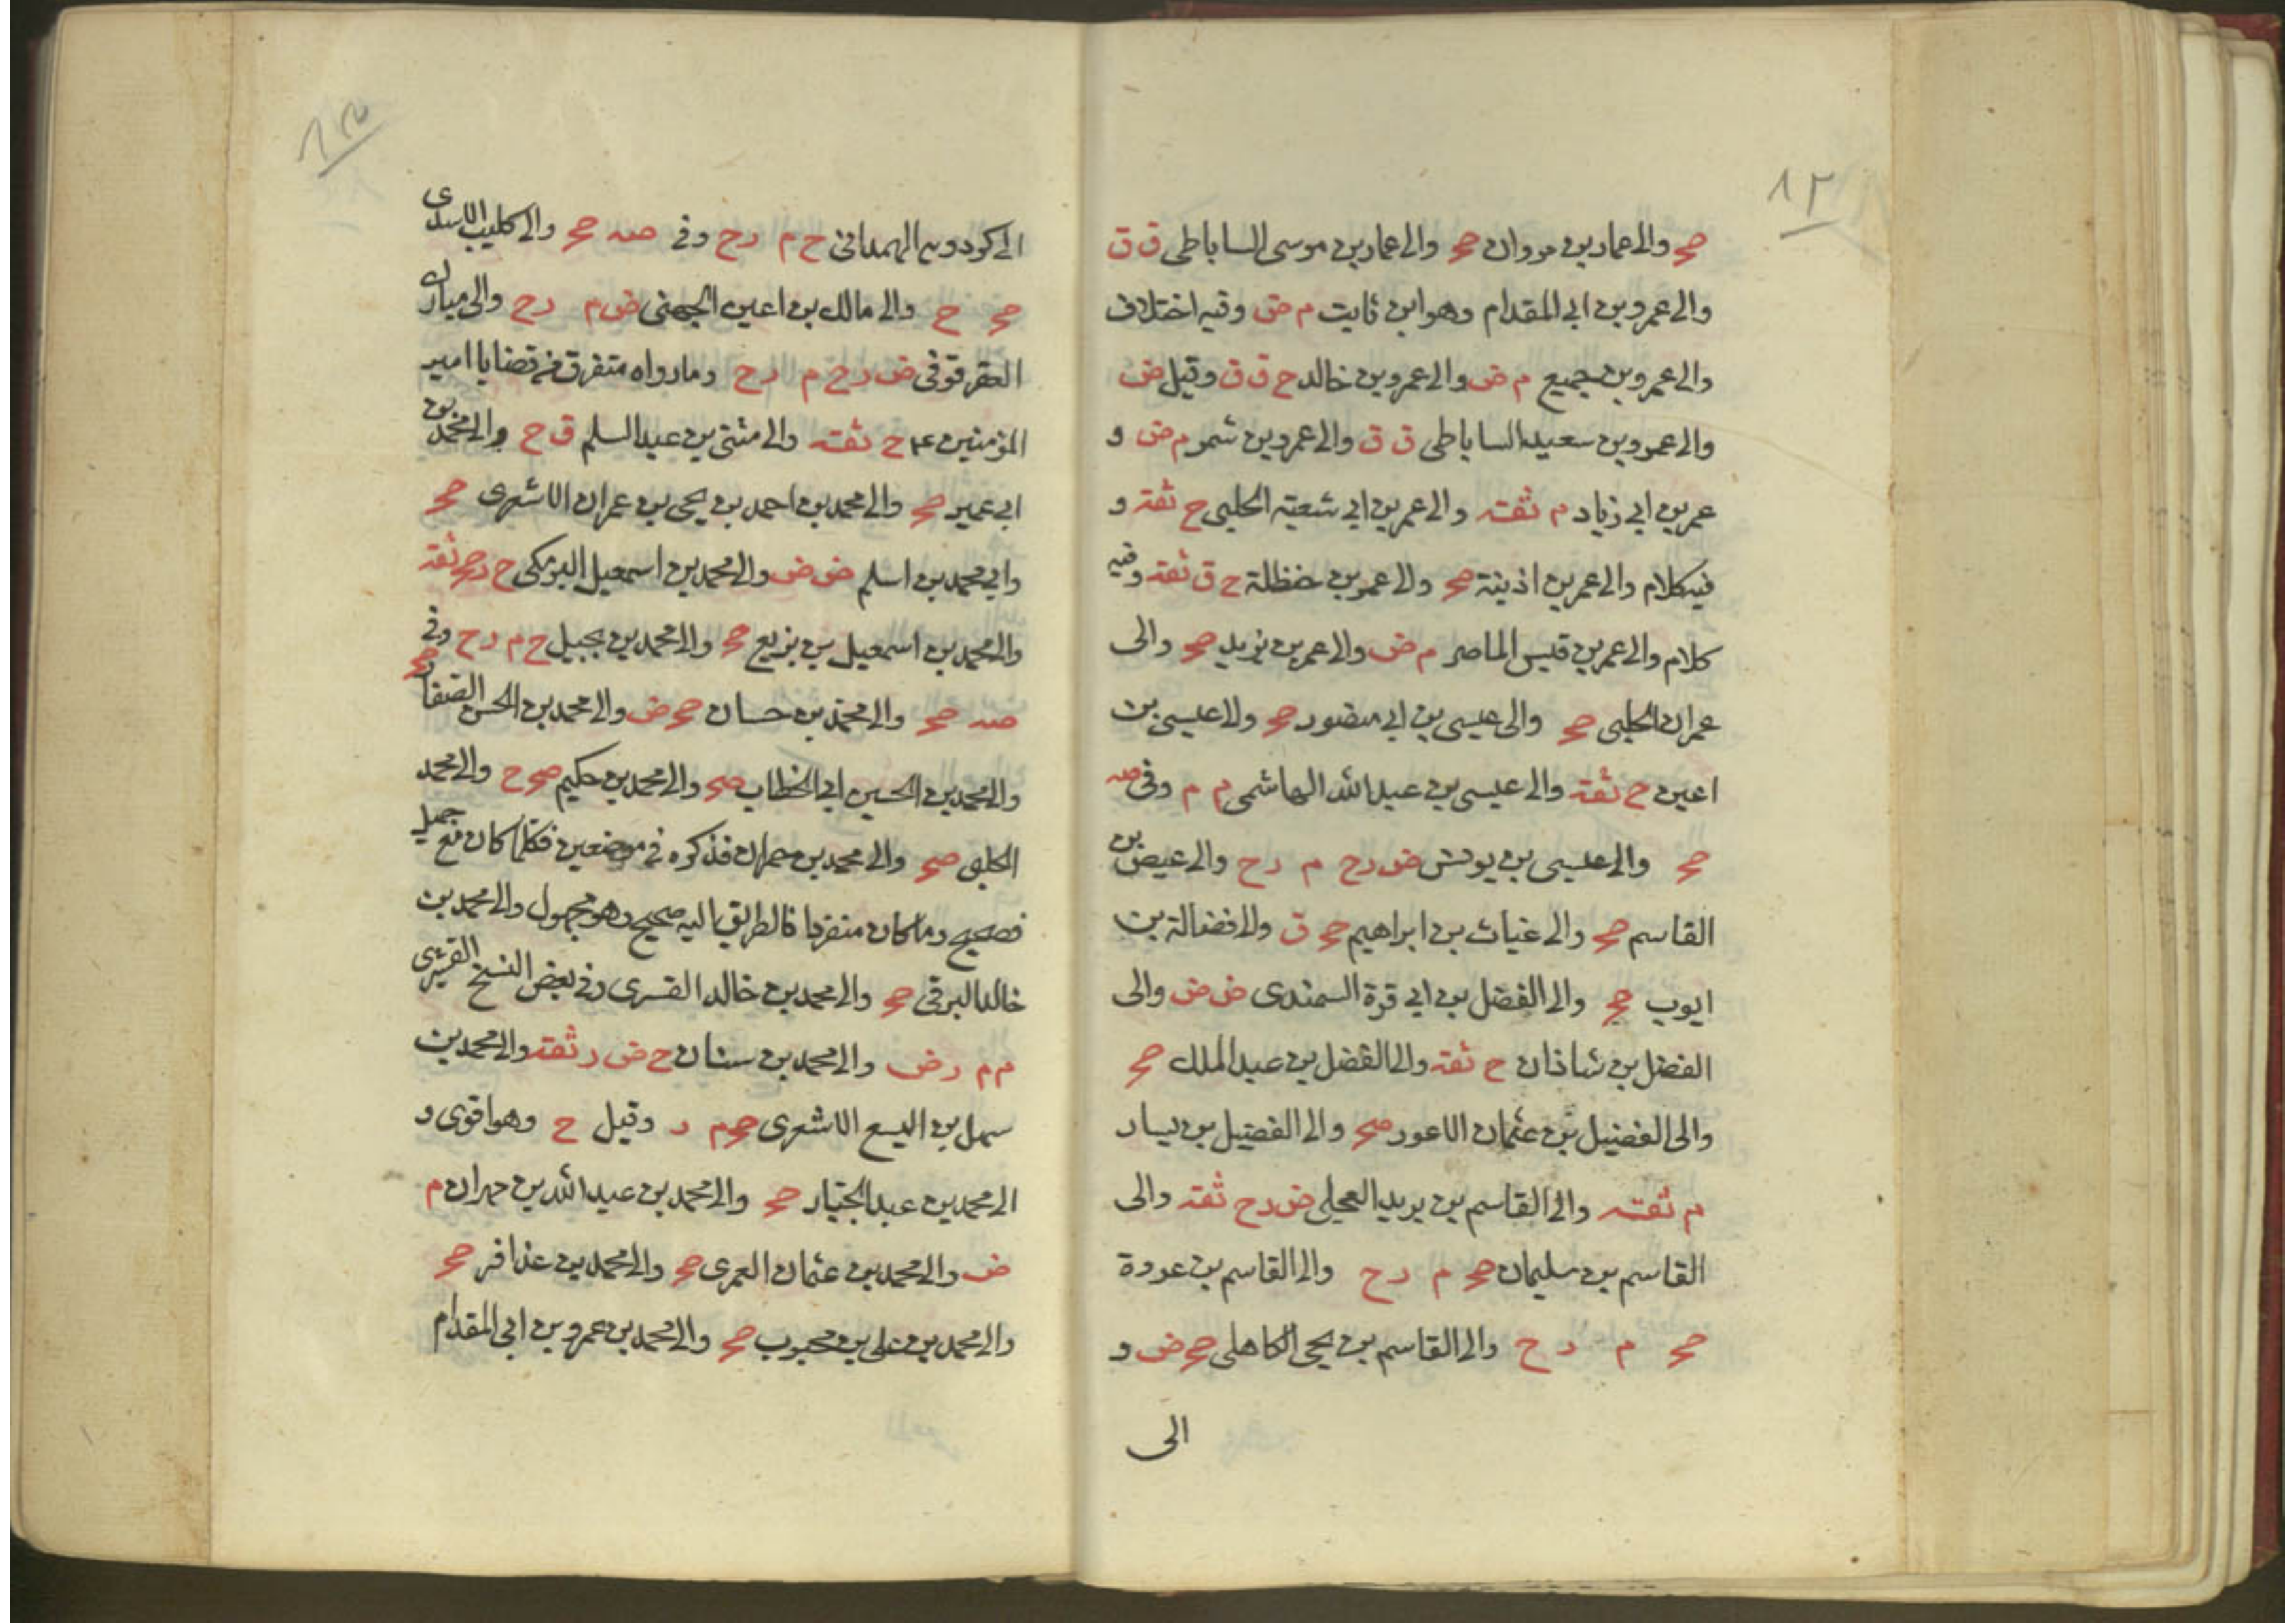 ١٢
صح والى عمار بن مروان صح والى عمار بن موسى الساباطى ق ق
والى عمرو بن ابى المقدام وهو ابن ثابت م ض وفيه اختلاف
والى عمرو بن جميع م ض والى عمرو بن خالد ح ق ق وقيل ض
والى عمرو بن سعيد الساباطى ق ق والى عمرو بن شمر م ض و
عمر بن ابى زياد م ثقة والى عمر بن ابى شعبة الحلبى ح ثقة و
فيه كلام والى عمر بن اذينة صح والى عمر بن حنظلة ح ق ثقة وفيه
كلام والى عمر بن قيس الماصر م ض والى عمر بن يزيد صح والى
عمران الحلبى صح والى عيسى بن ابى منصور صح والى عيسى بن
اعين ح ثقة والى عيسى بن عبد الله الهاشمى م م وفى صه
صح والى عيسى بن يونس ض رح م رح والى عيص بن
القاسم صح والى غياث بن ابراهيم صح ق والى فضالة بن
ايوب صح والى الفضل بن ابى قرة السمندى ض ض والى
الفضل بن شاذان ح ثقة والى الفضل بن عبد الملك صح
والى الفضيل بن عثمان الاعور صح والى الفضيل بن يسار
م ثقة والى القاسم بن بريد العجلى ض رح ثقة والى
القاسم بن سليمان صح م رح والى القاسم بن عروة
صح م رح والى القاسم بن يحيى الكاهلى صح ض و
الى
الى كردويه الهمدانى ح م رح وفى صه صح والى كليب الاسدى
صح ح والى مالك بن اعين الجهنى ض م رح والى مبارك
العقرقوفى ض رح م رح وما رواه متفرق فى قضايا امير
المؤمنين عم ح ثقة والى مثنى بن عبد السلم ق ح والى محمد بن
ابى عمير صح والى محمد بن احمد بن يحيى بن عمران الاشعرى صح
والى محمد بن اسلم ض ض والى محمد بن اسمعيل البرمكى ح رصح ثقة
والى محمد بن اسمعيل بن بزيع صح والى محمد بن بجيل ح م رح وفى
صه صح والى محمد بن حسان صح ض والى محمد بن الحسن الصفار صح
والى محمد بن الحسين ابى الخطاب صح والى محمد بن حكيم صح ح والى محمد
الحلبى صح والى محمد بن حمران فذكره فى موضعين فكلما كان مع جميل
فصحيح وما كان منفردا فالطريق اليه صحيح وهو مجهول والى محمد بن
خالد البرقى صح والى محمد بن خالد القسرى وفى بعض النسخ القشيرى
م م رض والى محمد بن سنان ح ض ر ثقة والى محمد بن
سهل بن اليسع الاشعرى صح م ر وقيل ح وهو اقوى و
الى محمد بن عبد الجبار صح والى محمد بن عبد الله بن مهران م
ض والى محمد بن عثمان العمرى صح والى محمد بن عذافر صح
والى محمد بن على بن محبوب صح والى محمد بن عمرو بن ابى المقدام